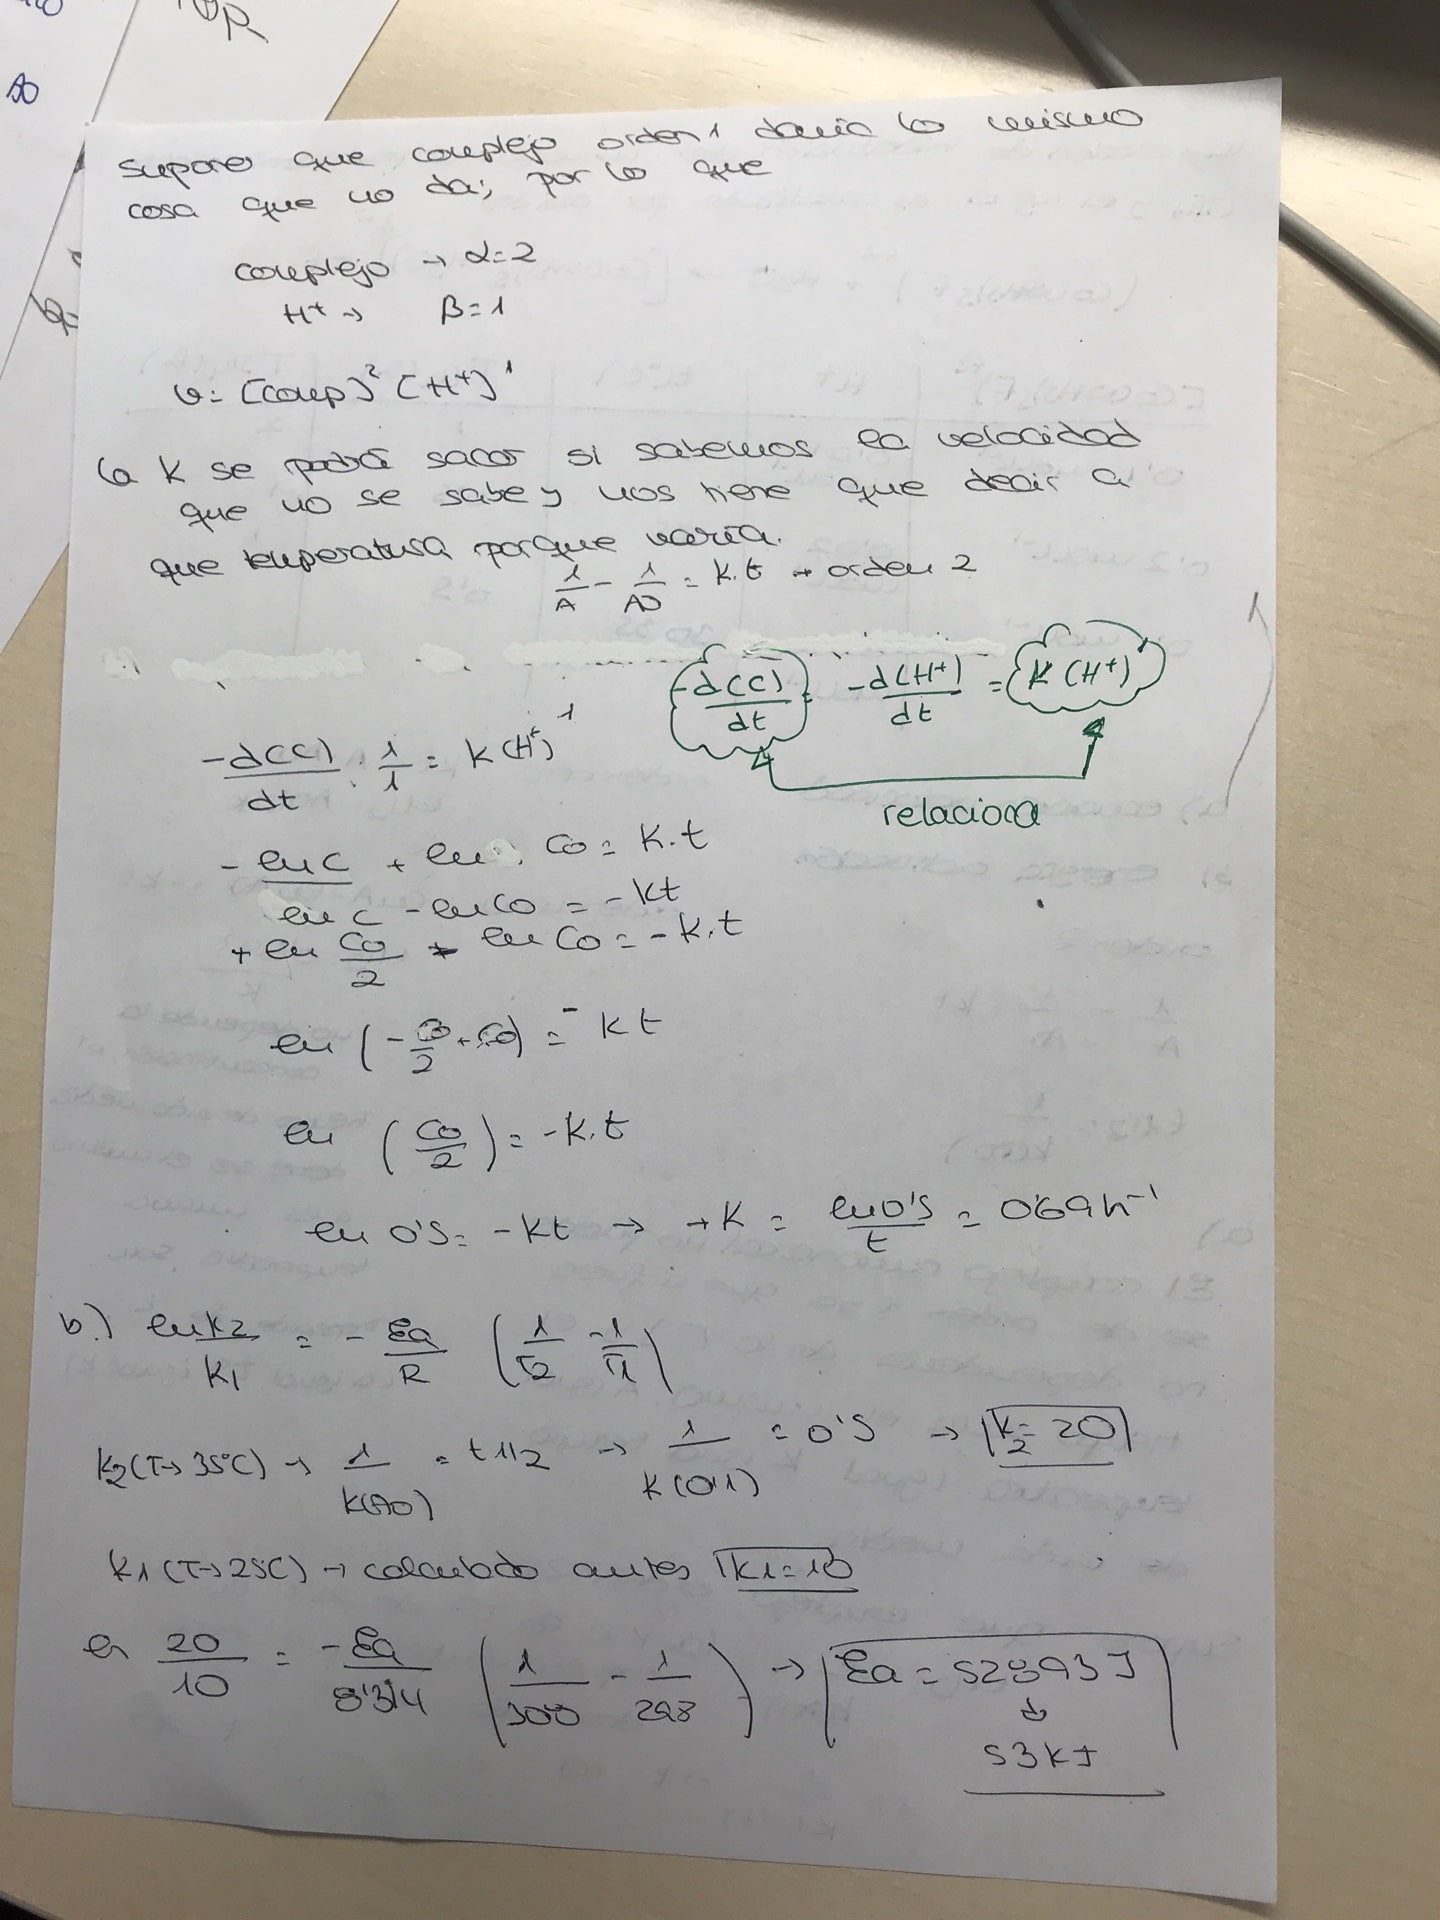 suponer que complejo orden 1 daria lo mismo
cosa que no da; por lo que
complejo → α=2
H⁺ → β=1
v= [comp]² [H⁺]¹
la K se podrá sacar si sabemos la velocidad
que no se sabe y nos tiene que decir a
que temperatura porque varía.
1/A - 1/A0 = K.t → orden 2
-d(C)/dt = -d(H⁺)/dt = K (H⁺)
relaciona
-d(C)/dt · 1/1 = K (H⁺)¹
- ln C + ln C0 = K.t
ln C - ln C0 = -Kt
+ ln C0/2 - ln C0 = -K.t
ln (-C0/2 + C0) = - Kt
ln (C0/2) = -K.t
ln 0'5 = -Kt → +K = ln 0'5/t = 0'69 h⁻¹
b.) ln K2/K1 = - Ea/R (1/T2 - 1/T1)
K2 (T→ 35°C) → 1/K(A0) = t 1/2 → 1/K(0'1) = 0'5 → K2 = 20
K1 (T→25°C) → calculado antes K1=10
ln 20/10 = -Ea/8'314 (1/308 - 1/298) → Ea = 52893 J
↓
53 KJ
R